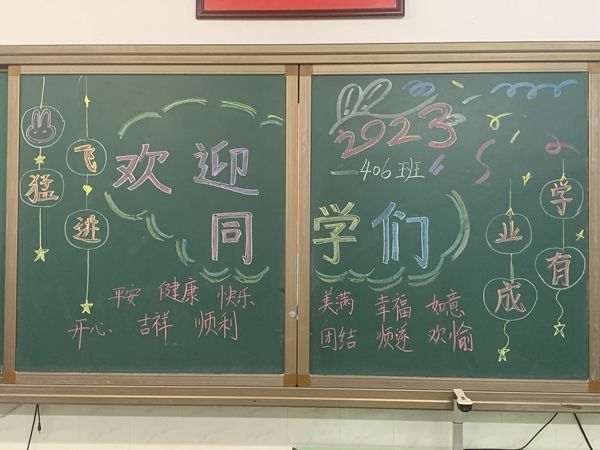 猛
飞进
欢迎
同学们
平安 健康 快乐
开心 吉祥 顺利
2023
406班
美满 幸福 如意
团结 顺遂 欢愉
学有
业成